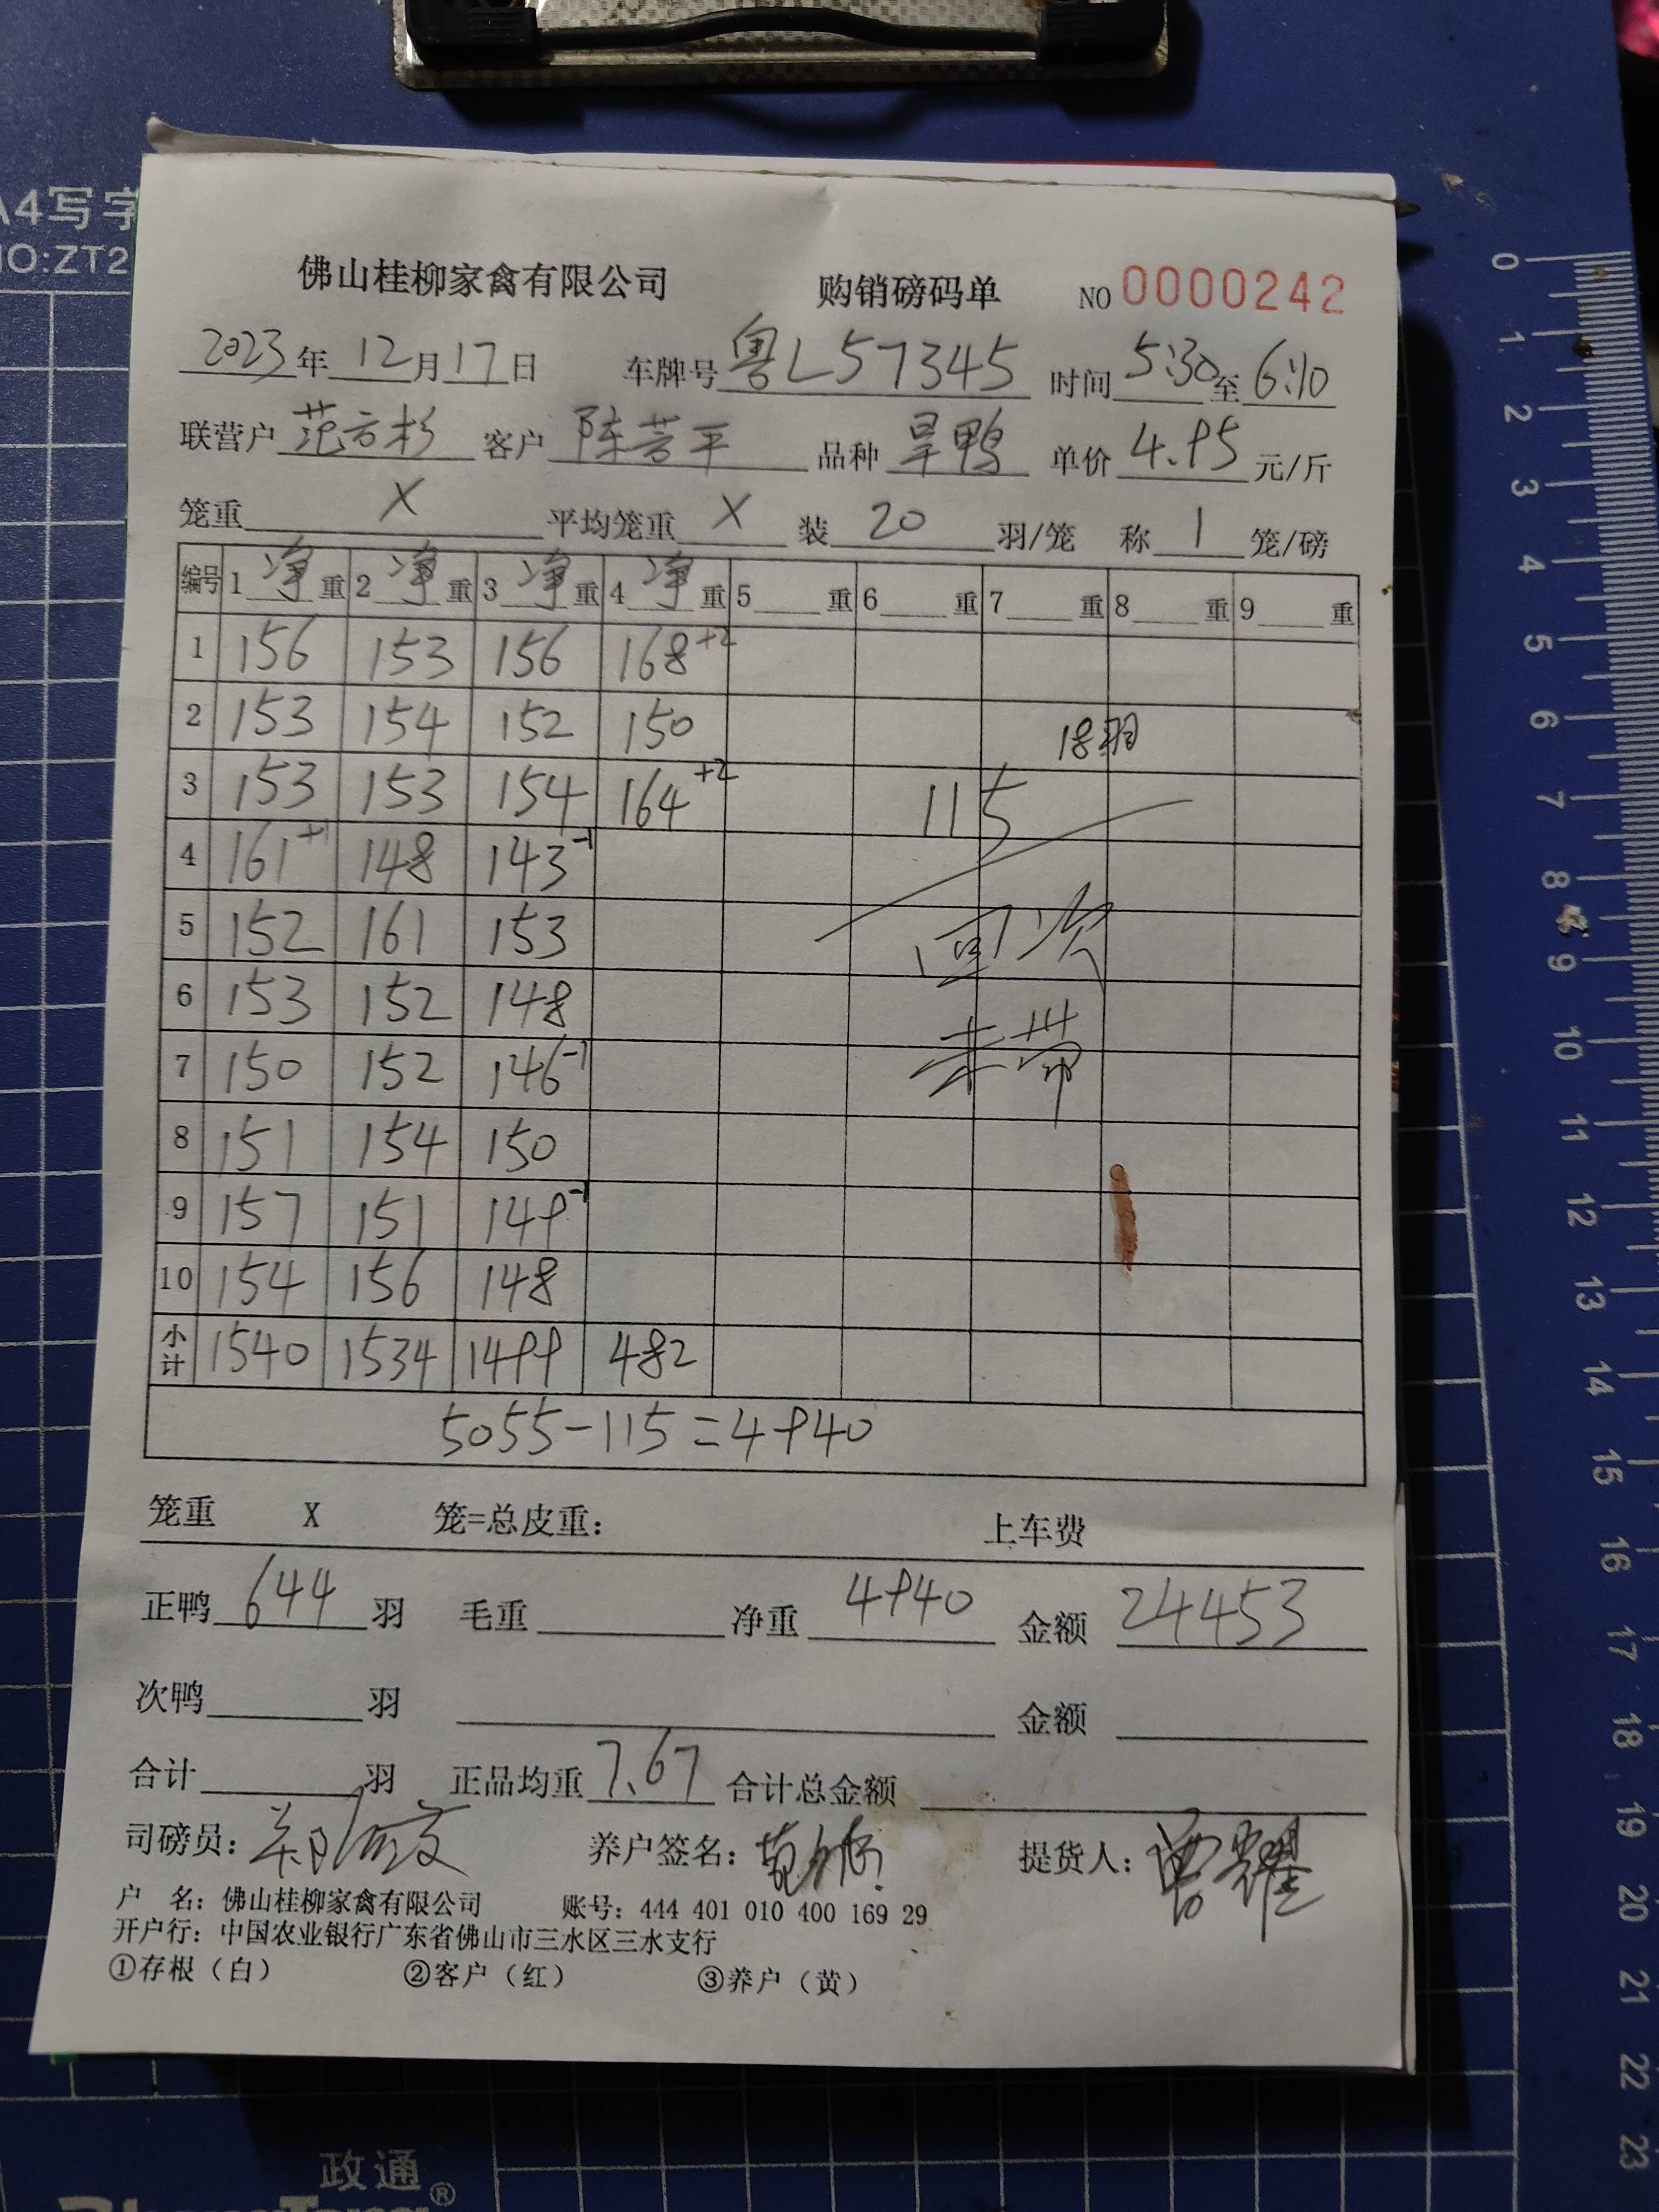 A4写字
NO:ZT2
佛山桂柳家禽有限公司 购销磅码单 NO 0000242
2023年12月17日 车牌号 粤L57345 时间 5:30至6:10
联营户 范方杉 客户 陈芳平 品种 旱鸭 单价 4.95 元/斤
笼重 X 平均笼重 X 装 20 羽/笼 称 1 笼/磅
编号 1 净重 2 净重 3 净重 4 净重 5 重 6 重 7 重 8 重 9 重
1 156 153 156 168+2
2 153 154 152 150 18羽
3 153 153 154 164+2 115
4 161+1 148 143-1
5 152 161 153 回次
6 153 152 148
7 150 152 146-1 未带
8 151 154 150
9 157 151 149-1
10 154 156 148
小计 1540 1534 1499 482
5055-115=4940
笼重 X 笼=总皮重: 上车费
正鸭 644 羽 毛重 净重 4940 金额 24453
次鸭 羽 金额
合计 羽 正品均重 7.67 合计总金额
司磅员: 养户签名: 提货人:
户 名: 佛山桂柳家禽有限公司 账号: 444 401 010 400 169 29
开户行: 中国农业银行广东省佛山市三水区三水支行
①存根(白) ②客户(红) ③养户(黄)
政通®
0
1
2
3
4
5
6
7
8
9
10
11
12
13
14
15
16
17
18
19
20
21
22
23